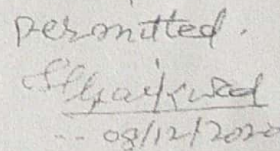 permitted.
08/12/2020